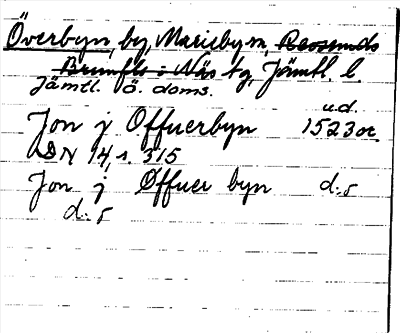 Överbyn, by, Marieby sn, Revsunds
Brunflo o Näs tg, Jämtl. l.
Jämtl. ö. doms.
Jon j Offuerbyn u.d. 1523 oc
DN 14, s. 315
Jon j Øffuer byn d:o
d:o